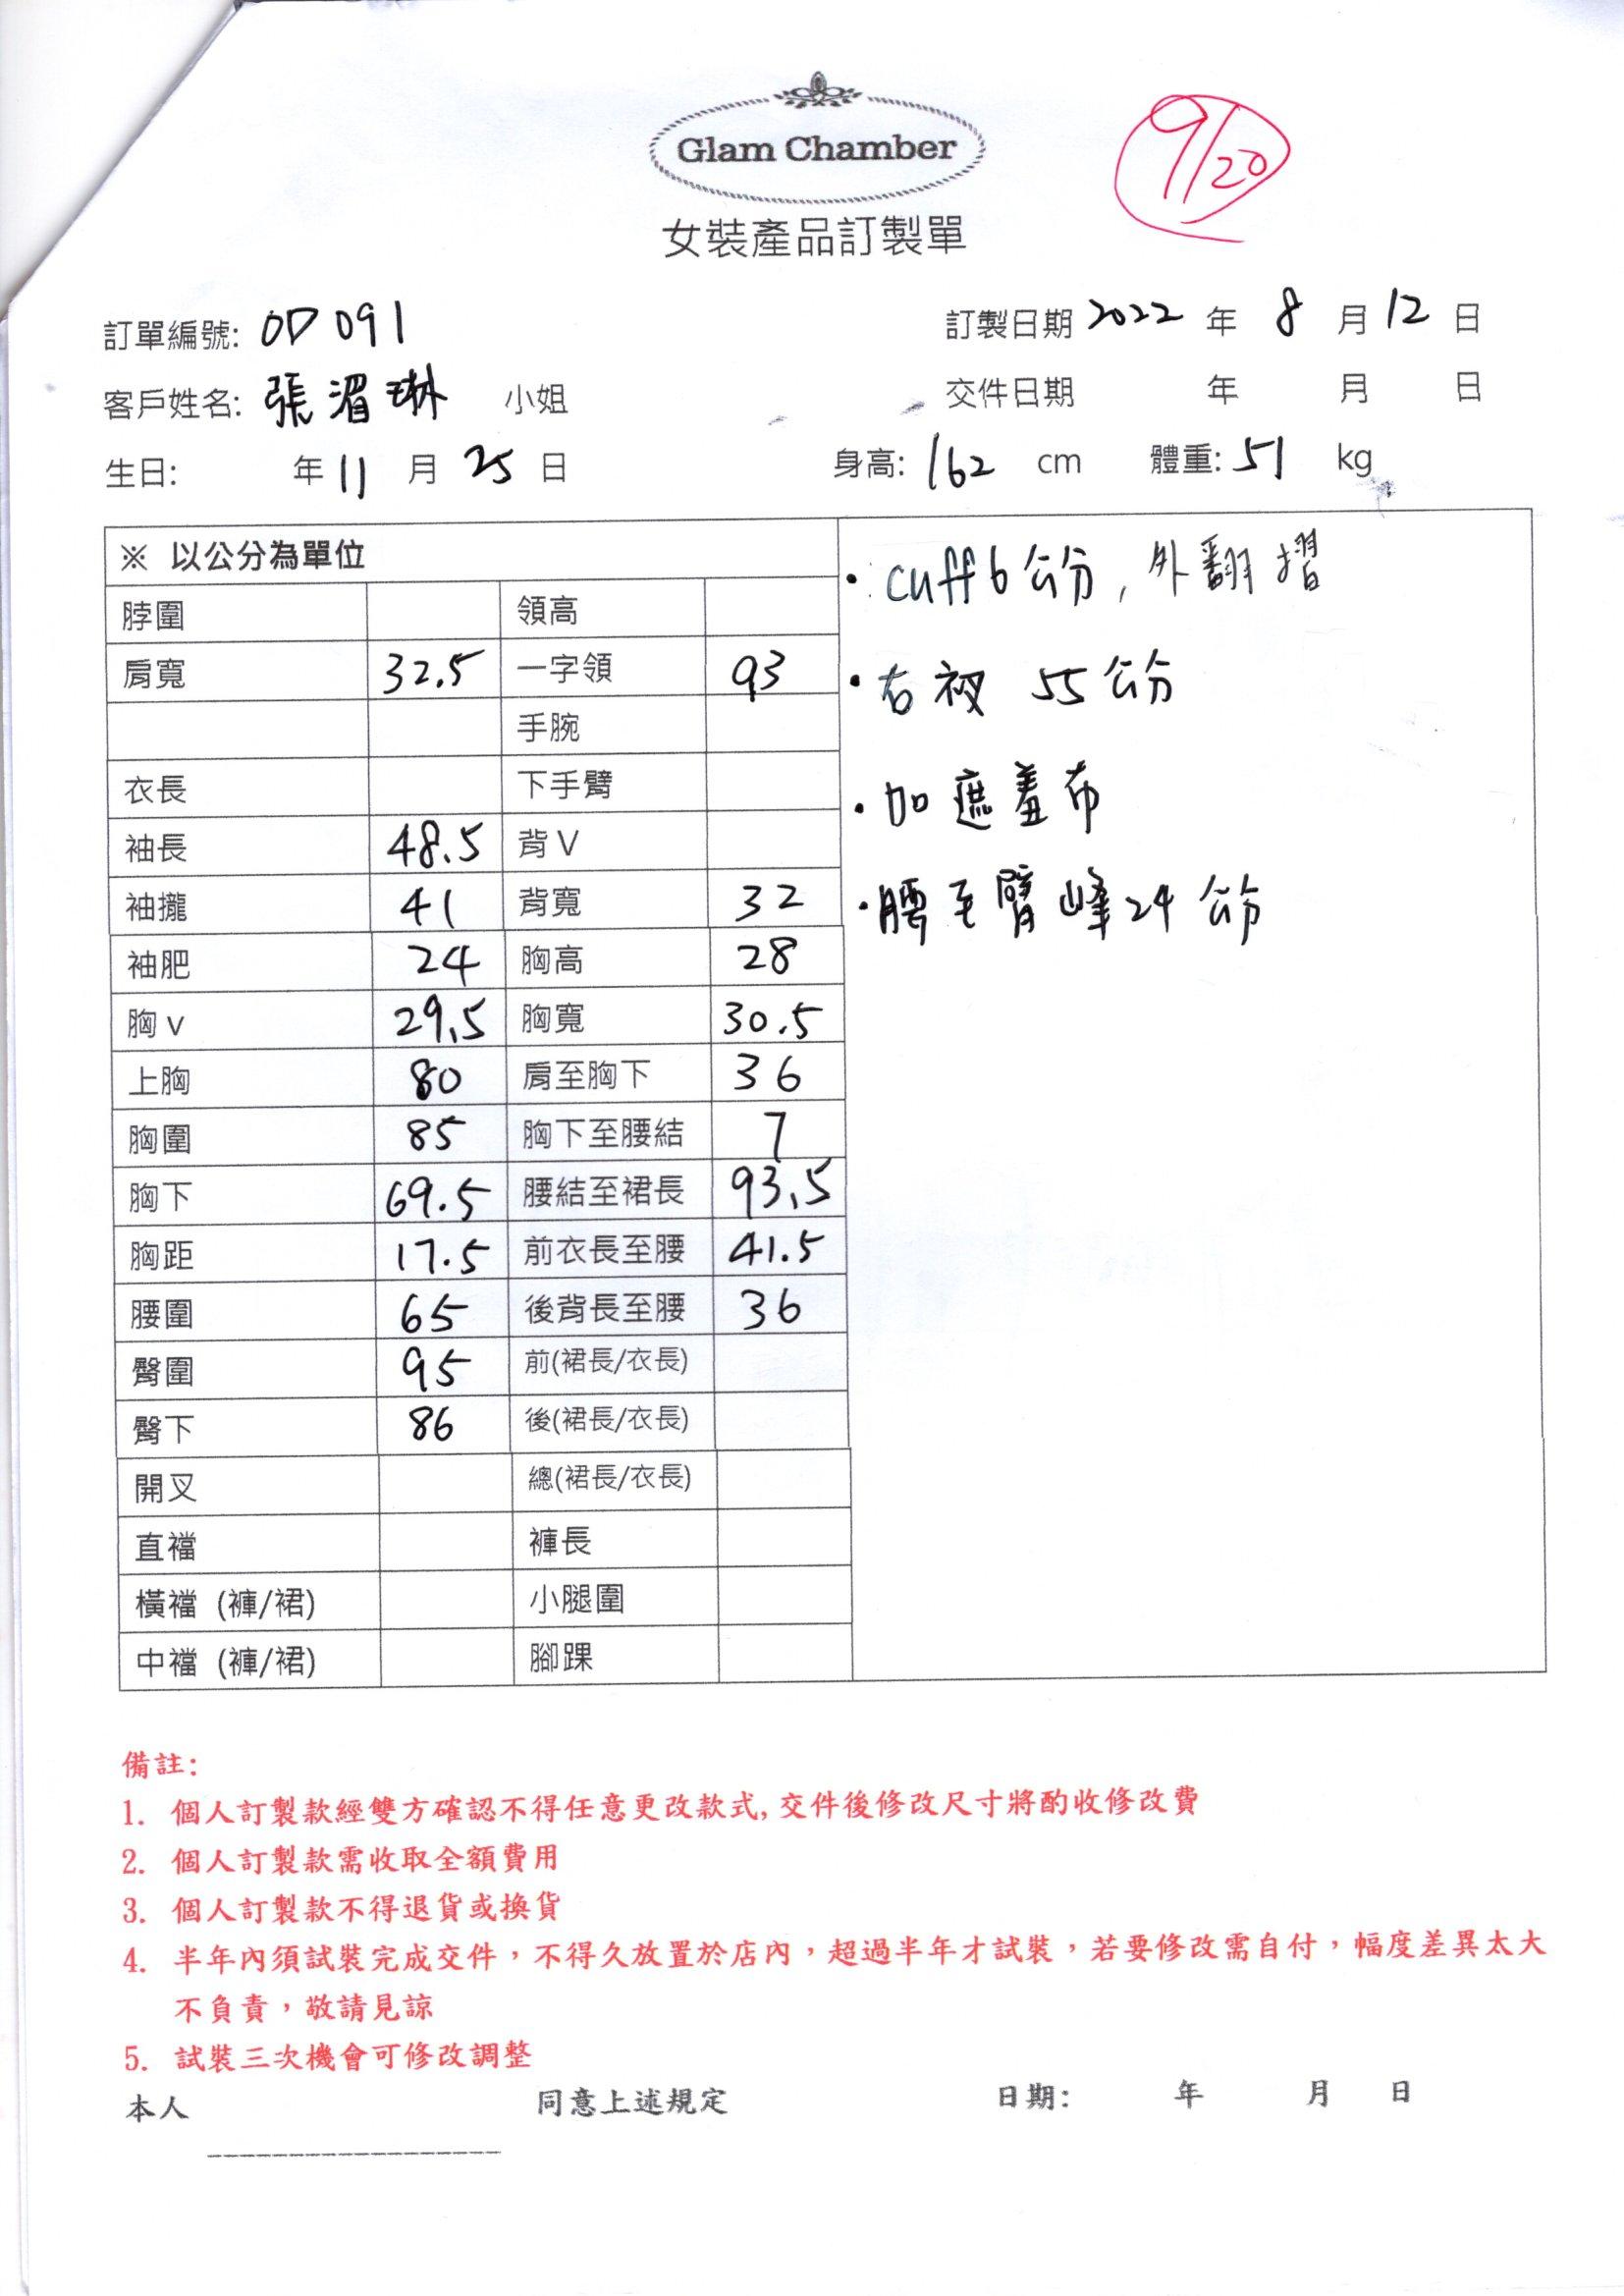 Glam Chamber
9/20
女裝產品訂製單
訂單編號: OD091 訂製日期 2022 年 8 月 12 日
客戶姓名: 張湄琳 小姐 交件日期 年 月 日
生日: 年 11 月 25 日 身高: 162 cm 體重: 51 kg
※ 以公分為單位
脖圍 領高
肩寬 32.5 一字領 93
手腕
衣長 下手臂
袖長 48.5 背V
袖攏 41 背寬 32
袖肥 24 胸高 28
胸v 29.5 胸寬 30.5
上胸 80 肩至胸下 36
胸圍 85 胸下至腰結 7
胸下 69.5 腰結至裙長 93.5
胸距 17.5 前衣長至腰 41.5
腰圍 65 後背長至腰 36
臀圍 95 前(裙長/衣長)
臀下 86 後(裙長/衣長)
開叉 總(裙長/衣長)
直襠 褲長
橫襠 (褲/裙) 小腿圍
中襠 (褲/裙) 腳踝
• cuff 6 公分, 外翻摺
• 右衩 55 公分
• 加遮羞布
• 腰至臀峰 24 公分
備註:
1. 個人訂製款經雙方確認不得任意更改款式, 交件後修改尺寸將酌收修改費
2. 個人訂製款需收取全額費用
3. 個人訂製款不得退貨或換貨
4. 半年內須試裝完成交件，不得久放置於店內，超過半年才試裝，若要修改需自付，幅度差異太大
不負責，敬請見諒
5. 試裝三次機會可修改調整
本人 同意上述規定 日期: 年 月 日